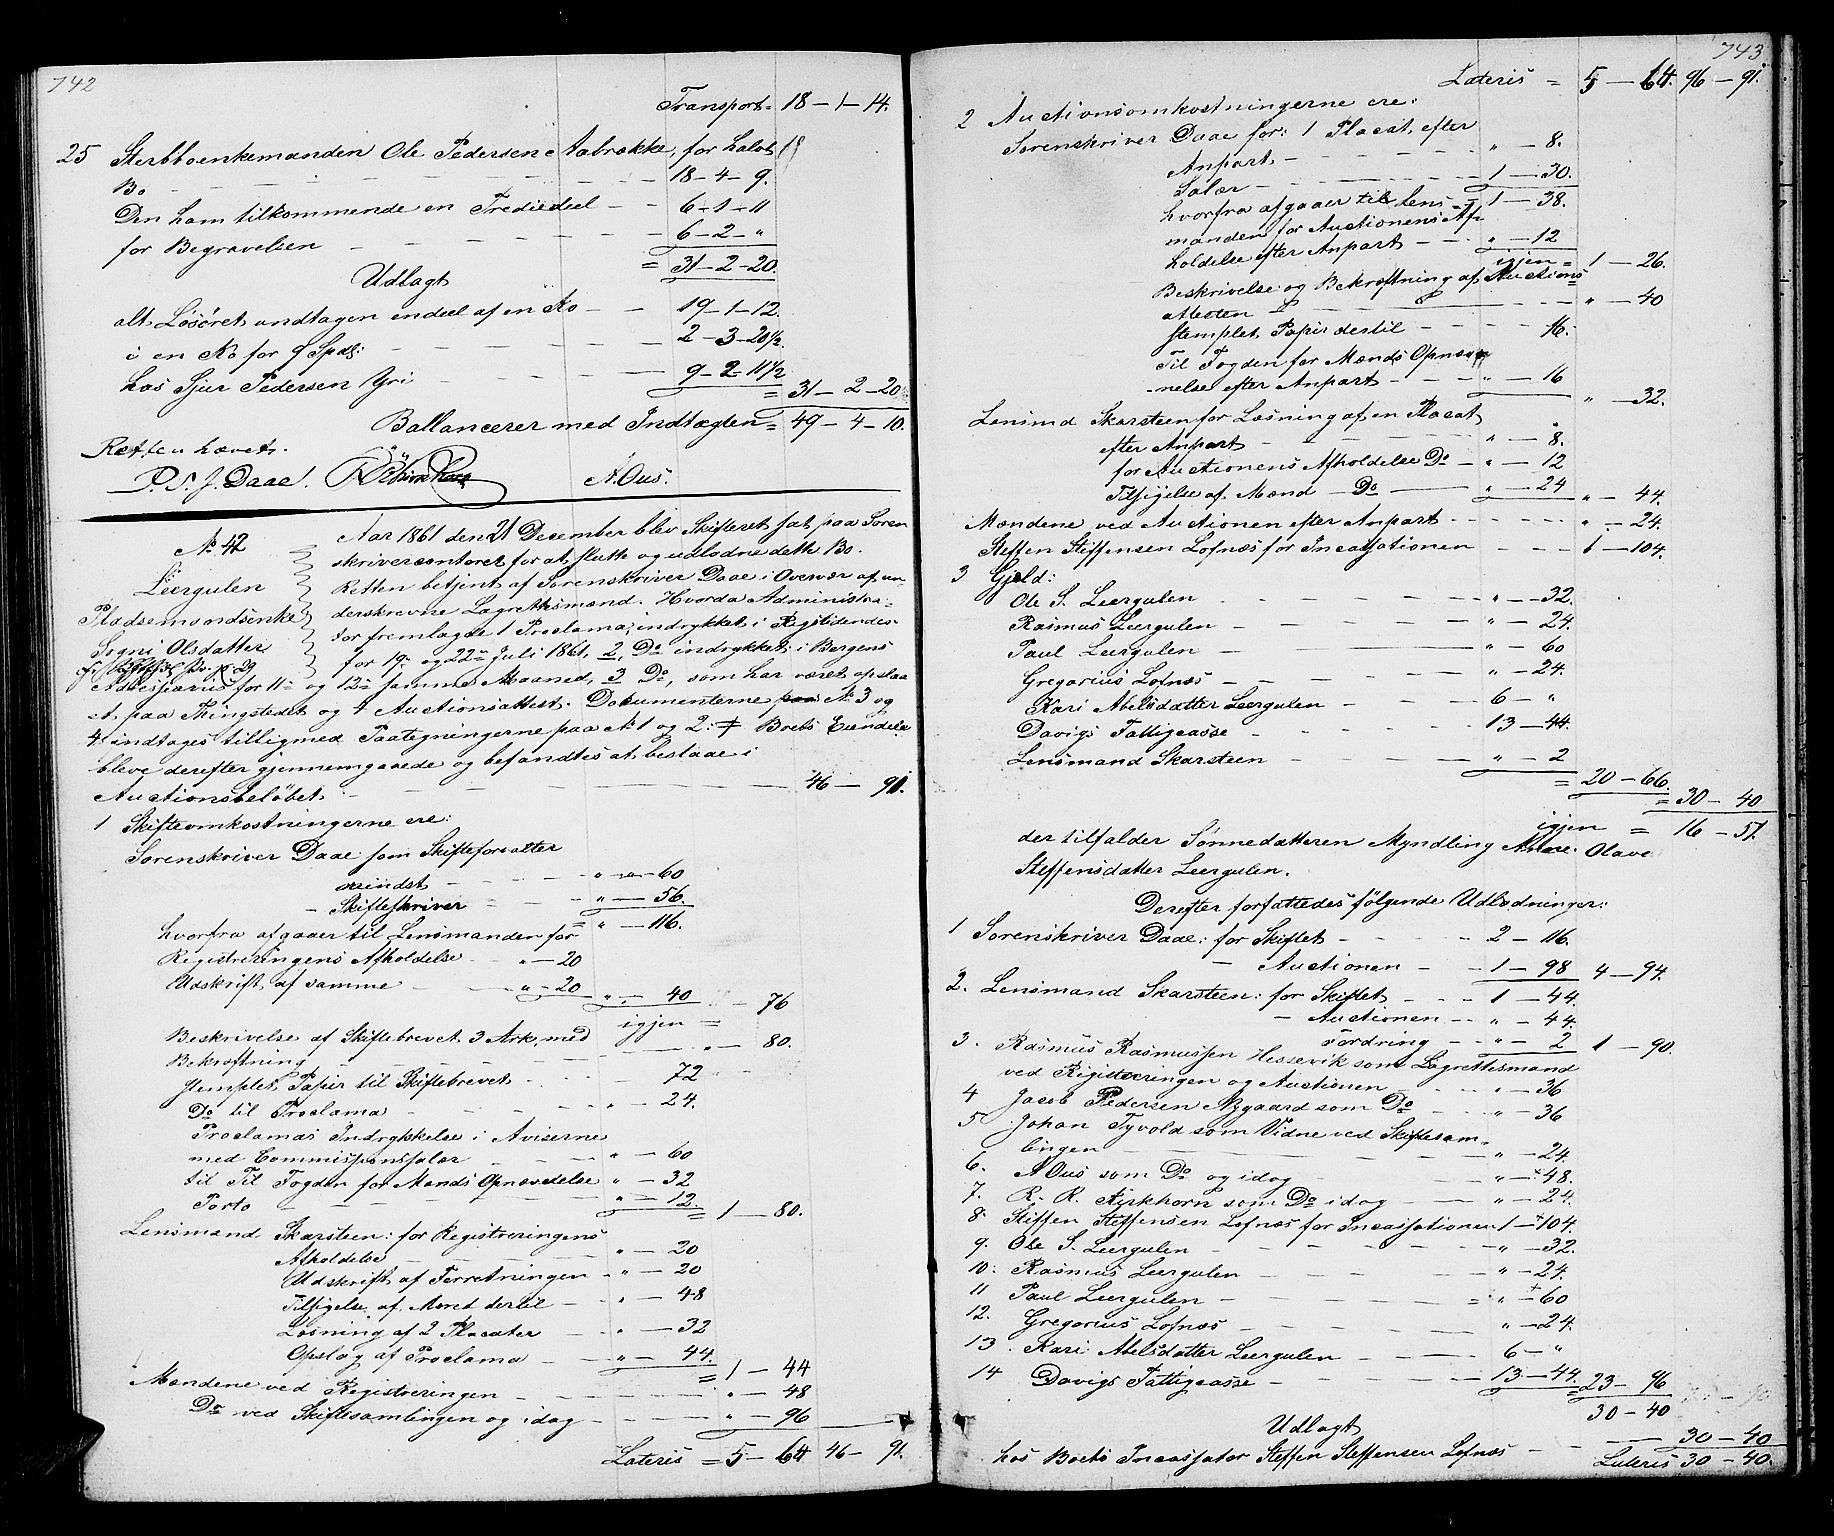 742
Transport = 18 – 1 – 14.
25 Sterbboenkemanden Ole Pedersen Aabrække, for halvt
Bo — — — 18 – 4 – 9.
Den ham tilkommende en Trediedeel — — 6 – 1 – 11
for Begravelsen — — — 6 – 2 – "
= 31 – 2 – 20.
Udlagt
alt Løsøret undtagen endeel af en Ko — — 19 – 1 – 12.
i en Ko for 9 Spdl: — — — 2 – 3 – 20½
hos Sjur Pedersen Yri — — — 9 – 2 – 11½
= 31 – 2 – 20
Ballancerer med Indtægten = 49 – 4 – 10.
Retten hævet.
P. S. J. Daae. A. Ous.
No 42
Leergulen
Pladsemandsenke
Sogni Olsdatter
Aar 1861 den 21 December blev Skifteret sat paa Soren
skrivercontoret for at slutte og udlodne dette Bo.
Retten betjent af Sorenskriver Daae i Overvær af un-
derskrevne Lagrettesmænd. Hvorda Administra-
tor fremlagde 1 Proclama, indrykket i Rigstidendes
for 19de og 22de Juli 1861, 2, Do indrykket i Bergens
Adressecontoirs for 11te og 12te samme Maaned, 3 Do, som har været opslaa
et paa Thingstedet og 4 Auctionsattest. Documenterne No 3 og
4 indtages tilligemed Paategningerne paa No 1 og 2: ǂ Boets Eiendele
bleve derefter gjennemgaaede og befandtes at bestaae i
Auctionsbeløbet — — — 46 – 91.
1 Skifteomkostningerne ere:
Sorenskriver Daae: som Skifteforvalter
mindst — — " – 60
– Skifteskriver — — " – 56.
= " – 116.
hvorfra afgaaer til Lensmanden for
Registreringens Afholdelse — " – 20
Udskrift af samme — — " – 20 " – 40
igjen = " – 76
Beskrivelse af Skiftebrevet 3 Ark, med
Bekræftning — — — " – 80.
stemplet Papir til Skiftebrevet — — – 72
Do til Proclama — — — " – 24.
Proclamas Indrykkelse i Aviserne
med Commissionssalær — — " – 60
til Til Fogden for Mænds Opnævnelse " – 32
Porto — — — " – 12.
= 1 – 80.
Lensmand Skarsteen: for Registreringens
Afholdelse — — " – 20
Udskrift af Forretningen — " – 20
Tilsigelse af Mænd dertil — " – 48
Læsning af 2 Placater — " – 32
Opslag af Proclama — — " – 44.
= 1 – 44
Mændene ved Registreringen — — — " – 48
Do ved Skiftesamlingen og idag — — " – 96
Lateris = 5 – 64 46 – 91.
743
Lateris = 5 – 64. 96 – 91.
2 Auctionsomkostningerne ere:
Sorenskriver Daae for: 1 Placat, efter
Anpart — — — " – 8.
Salær — — — 1 – 30.
= 1 – 38.
hvorfra afgaaer til Lens-
manden for Auctionens Af-
holdelse efter Anpart — — " – 12
igjen = 1 – 26.
Beskrivelse og Bekræftning af Auctions
attesten — — — " – 40
stemplet Papir dertil — — – 16.
Til Fogden for Mænds Opnæv
-nelse efter Anpart — — " – 16
" – 32.
Lensmd Skarsteen for Læsning af en Placat
efter Anpart — — — " – 8.
for Auctionens Afholdelse Do — " – 12
Tilsigelse af Mænd — Do — " – 24 " – 44.
Mændene ved Auctionen efter Anpart — — — " – 24.
Steffen Steffensen Lofnæs for Incassationen — — 1 – 104.
3 Gjeld:
Ole S. Leergulen — — — " – 32.
Rasmus Leergulen — — — " – 24.
Paul Leergulen — — — " – 60
Gregorius Lofnæs — — — " – 24.
Kari Abelsdatter Leergulen — — 6 – "
Davigs Fattigcasse — — — 13 – 44.
Lensmand Skarsteen — — — " – 2
= 20 – 66.
= 30 – 40
igjen = 16 – 51.
der tilfalder Sønnedatteren Myndling Olave
Steffensdatter Leergulen.
Derefter forfattedes følgende Udlodninger:
1 Sorenskriver Daae: for Skiftet — — 2 – 116.
– Auctionen — 1 – 98 4 – 94.
2. Lensmand Skarsteen: for Skiftet — — 1 – 44.
– Auctionen — " – 44.
Fordring — " – 2 1 – 90.
3. Rasmus Rasmussen Hessevik som Lagrettesmand
ved Registreringen og Auctionen — — " – 36
4 Jacob Pedersen Nygaard som Do — — " – 36
5 Johan Tyvold som Vidne ved Skiftesam-
lingen — — — " – 24.
6. A Ous som Do og idag — — " – 48.
7. R. R. Kirkhorn som Do idag — — " – 24.
8. Steffen Steffensen Lofnæs for Incassationen 1 – 104.
9. Ole S. Leergulen — — — " – 32.
10. Rasmus Leergulen — — — " – 24.
11 Paul Leergulen — — — " – 60
12. Gregorius Lofnæs — — — " – 24.
13. Kari Abelsdatter Leergulen — — 6 – "
14 Davigs Fattigcasse — — — 13 – 44. 23 – 96
30 – 40
Udlagt
hos Boets Incassator Steffen Steffensen Lofnæs — — 30 – 40
Lateris 30 – 40.